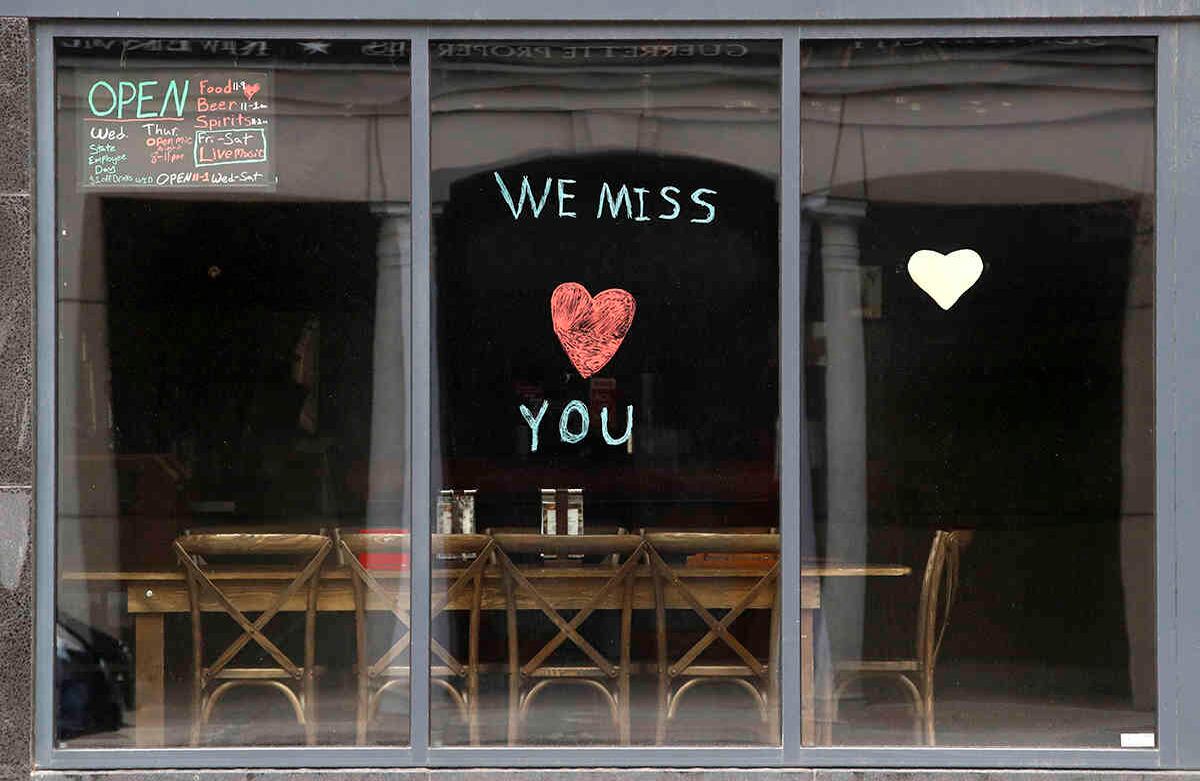 OPEN
Food 11-9
Beer 11-1am
Spirits
Wed.
State
Employee
Day
Thur.
Open Mic
8-11pm
Fri-Sat
Live music
OPEN 11-1 Wed-Sat
WE MISS
YOU
GUERRETTE PROPER